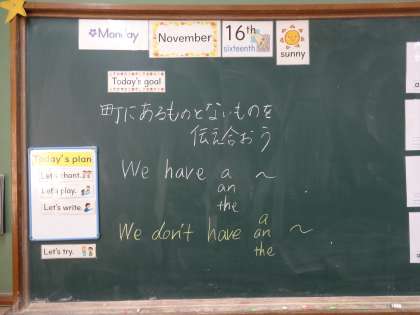 Monday
November
16th
sixteenth
sunny
Today's goal
町にあるものとないものを
伝え合おう
Today's plan
Let's chant.
Let's play.
Let's write.
Let's try.
We have a ~ .
an
the
We don't have a ~ .
an
the